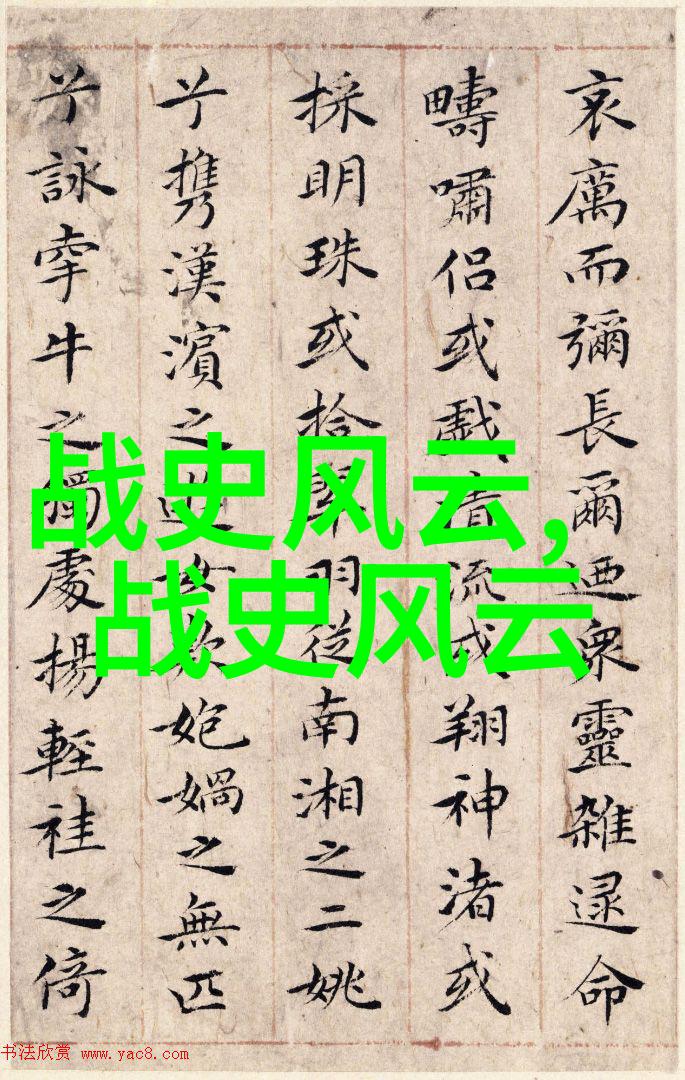 哀厲而彌長爾迺衆靈雜遝命
疇嘯侶或戲清流或翔神渚或
採明珠或拾翠羽従南湘之二姚
兮携漢濱之遊女歎媧之無匹
兮詠牽牛之獨處揚輕袿之倚
战史风云,
战史风云
书法欣赏 www.yac8.com